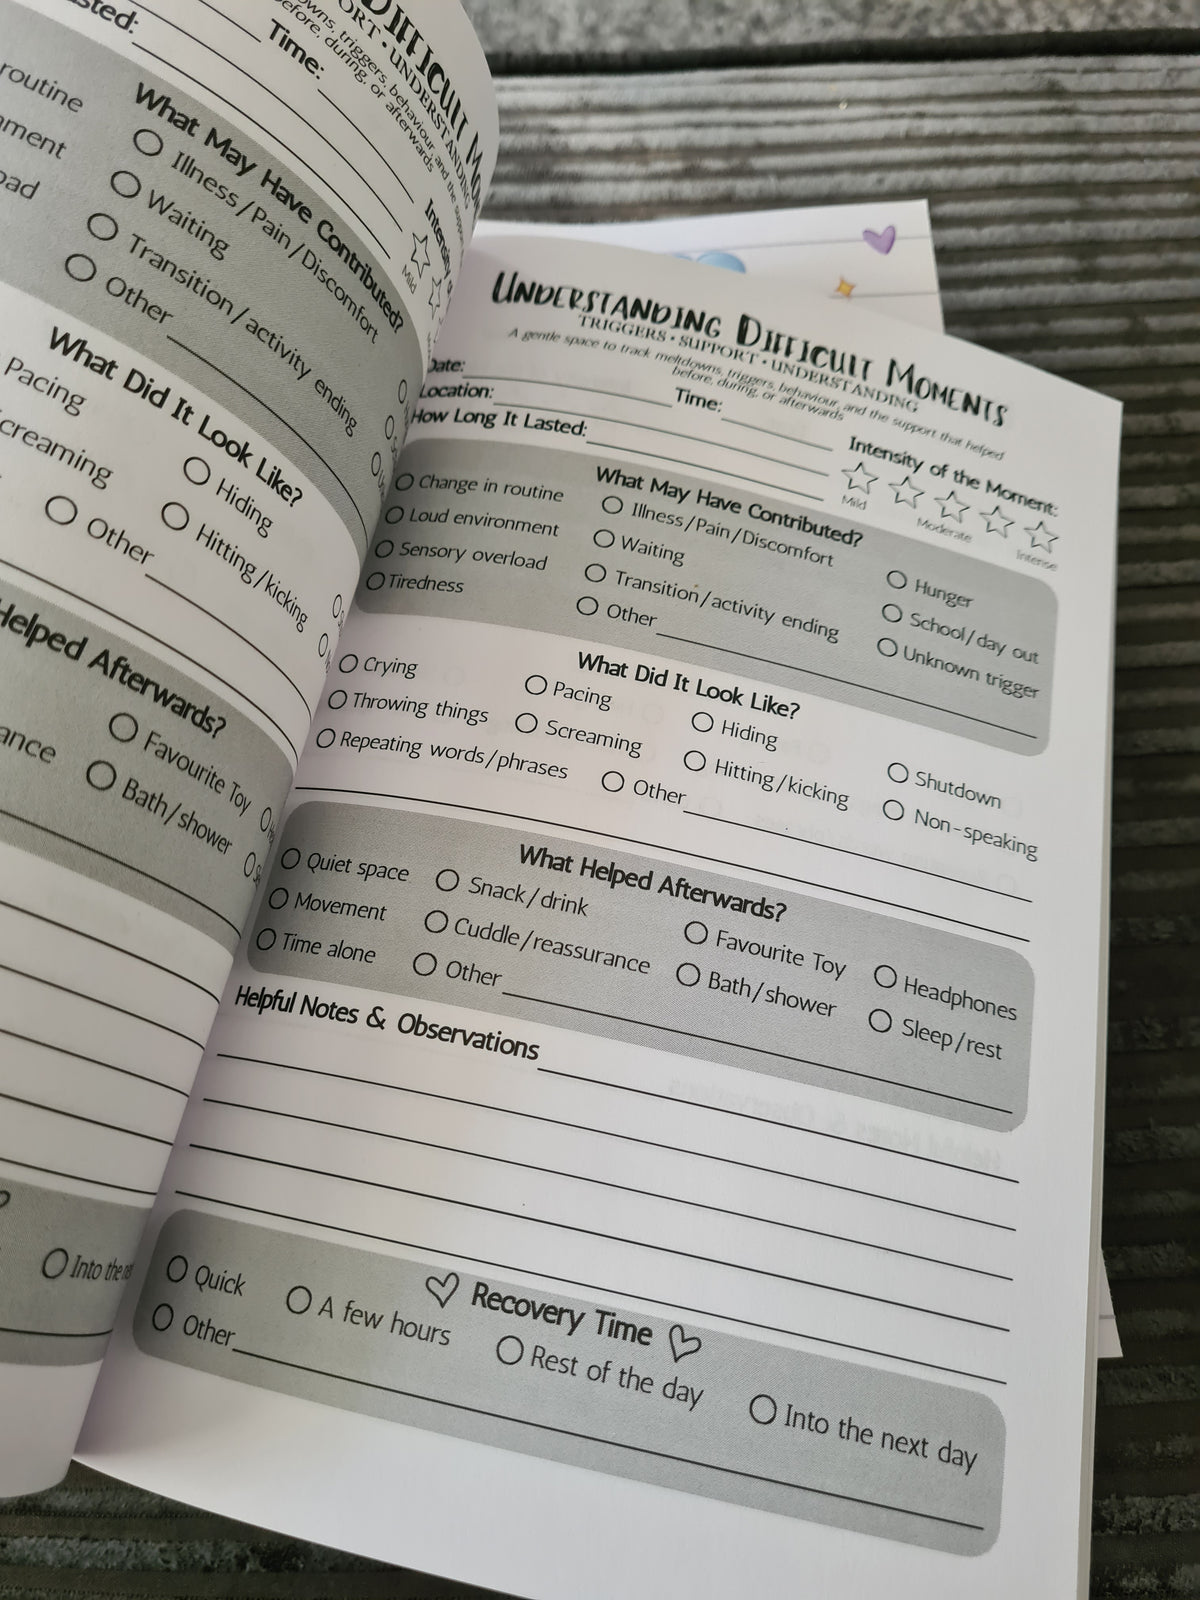 DIFFICULT MO
ORT • UNDERSTANDING
owns, triggers, behaviour, and the suppor
before, during, or afterwards
asted:
Time:
Intensity
Mild
What May Have Contributed?
routine
Illness/Pain/Discomfort
nment
Waiting
oad
Transition/activity ending
Other
What Did It Look Like?
Pacing
Hiding
creaming
Hitting/kicking
Other
Helped Afterwards?
Favourite Toy
ance
Bath/shower
Into the ne
UNDERSTANDING DIFFICULT MOMENTS
TRIGGERS • SUPPORT • UNDERSTANDING
A gentle space to track meltdowns, triggers, behaviour, and the support that helped
before, during, or afterwards
Date:
Time:
Location:
How Long It Lasted:
Intensity of the Moment:
Mild Moderate Intense
What May Have Contributed?
Change in routine Illness/Pain/Discomfort Hunger
Loud environment Waiting School/day out
Sensory overload Transition/activity ending Unknown trigger
Tiredness Other
What Did It Look Like?
Crying Pacing Hiding Shutdown
Throwing things Screaming Hitting/kicking Non-speaking
Repeating words/phrases Other
What Helped Afterwards?
Quiet space Snack/drink Favourite Toy Headphones
Movement Cuddle/reassurance Bath/shower Sleep/rest
Time alone Other
Helpful Notes & Observations
Recovery Time
Quick A few hours Rest of the day Into the next day
Other